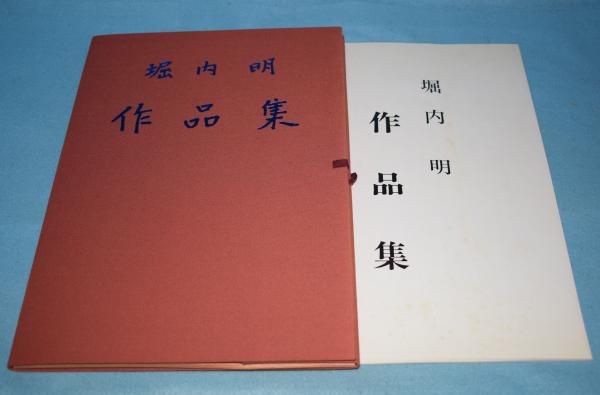 堀内明
作品集
堀内明
作品集